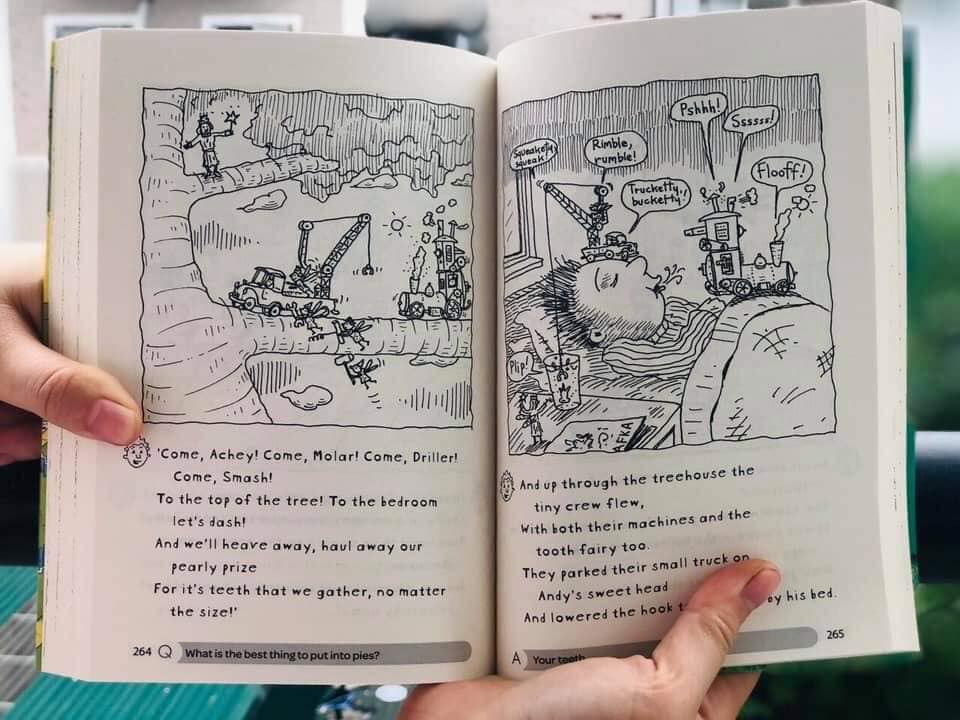 'Come, Achey! Come, Molar! Come, Driller!
Come, Smash!
To the top of the tree! To the bedroom
let's dash!
And we'll heave away, haul away our
pearly prize
For it's teeth that we gather, no matter
the size!'
264 Q What is the best thing to put into pies?
Squeakety
squeak!
Rimble,
rumble!
Trucketty,
bucketty!
Pshhh!
Ssssss!
Flooff!
Plip!
And up through the treehouse the
tiny crew flew,
With both their machines and the
tooth fairy too.
They parked their small truck on
Andy's sweet head
And lowered the hook by his bed.
A Your teeth
265